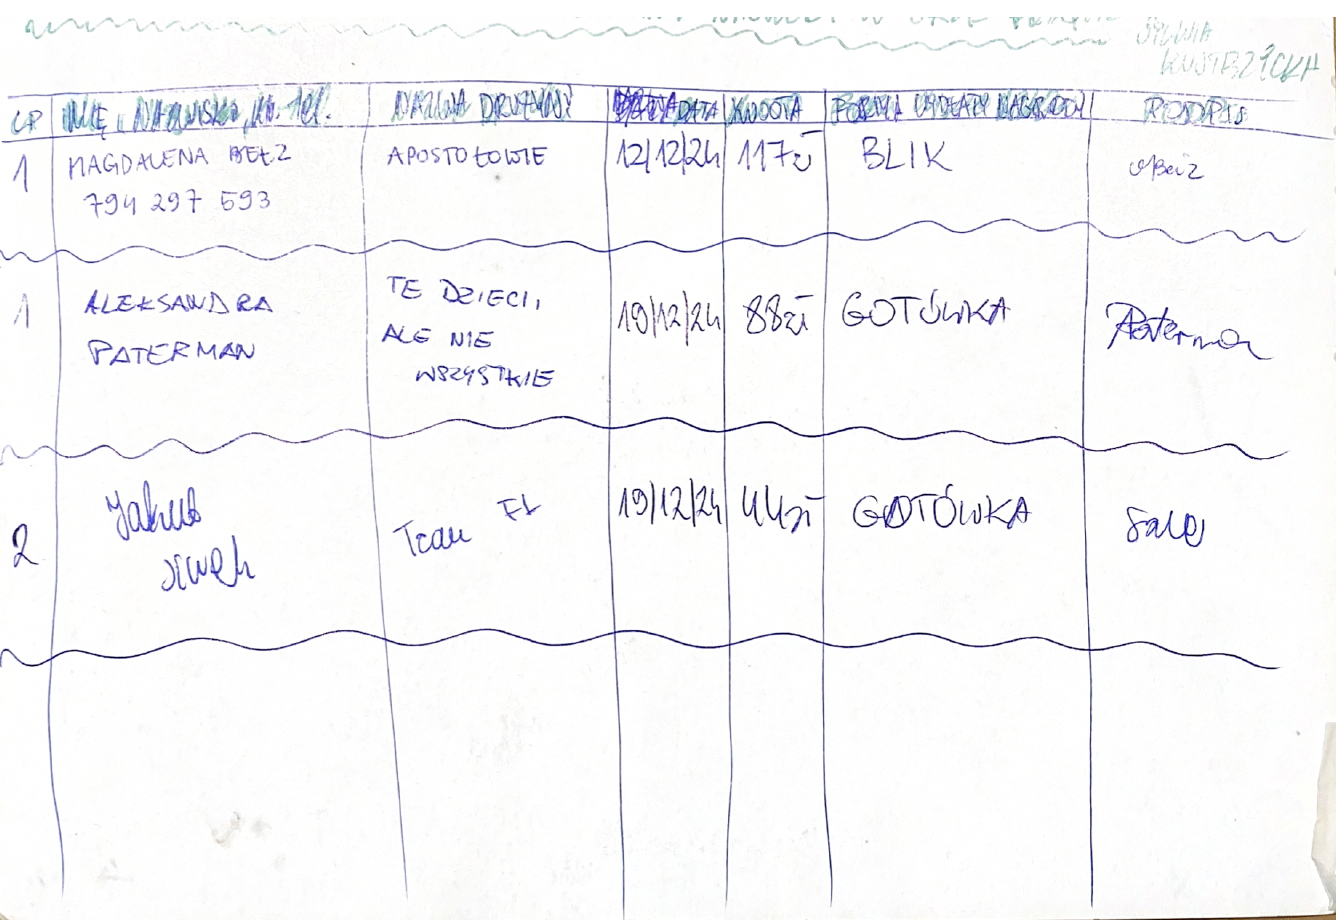 SYLWIA
LP IMIĘ, NAZWISKO, Nr. tel. NAZWA DRUŻYNY DATA KWOTA FORMA WYPŁATY NAGRODY PODPIS
1 MAGDALENA BEŁZ APOSTOŁOWIE 12/12/24 117zł BLIK
794 297 593
1 ALEKSANDRA PATERMAN TE DZIECI, ALE NIE WSZYSTKIE 19/12/24 88zł GOTÓWKA Paterman
2 Jakub Team 19/12/24 44zł GOTÓWKA